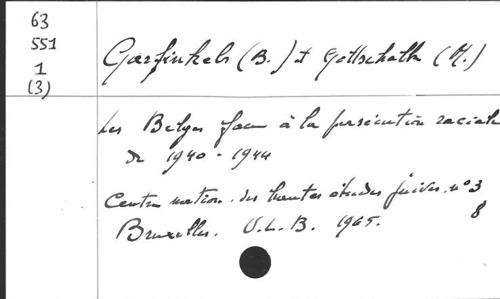 63
551
1
(3)
Garfinkels (B.) et Gottschalk (M.)
Les Belges face à la persécution raciale
de 1940 - 1944
Centre nation. des hautes études juives. n° 3
8
Bruxelles. U.L.B. 1965.